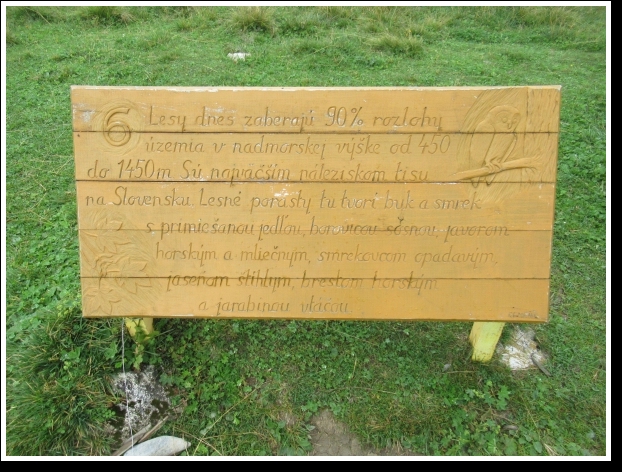 6 Lesy dnes zaberajú 90% rozlohy
územia v nadmorskej výške od 450
do 1450m. Sú najväčším náleziskom tisu
na Slovensku. Lesné porasty tu tvorí buk a smrek
s primiešanou jedľou, borovicou sosnou, javorom
horským a mliečnym, smrekovcom opadavým,
jaseňom štíhlym, brestom horským
a jarabinou vtáčou.